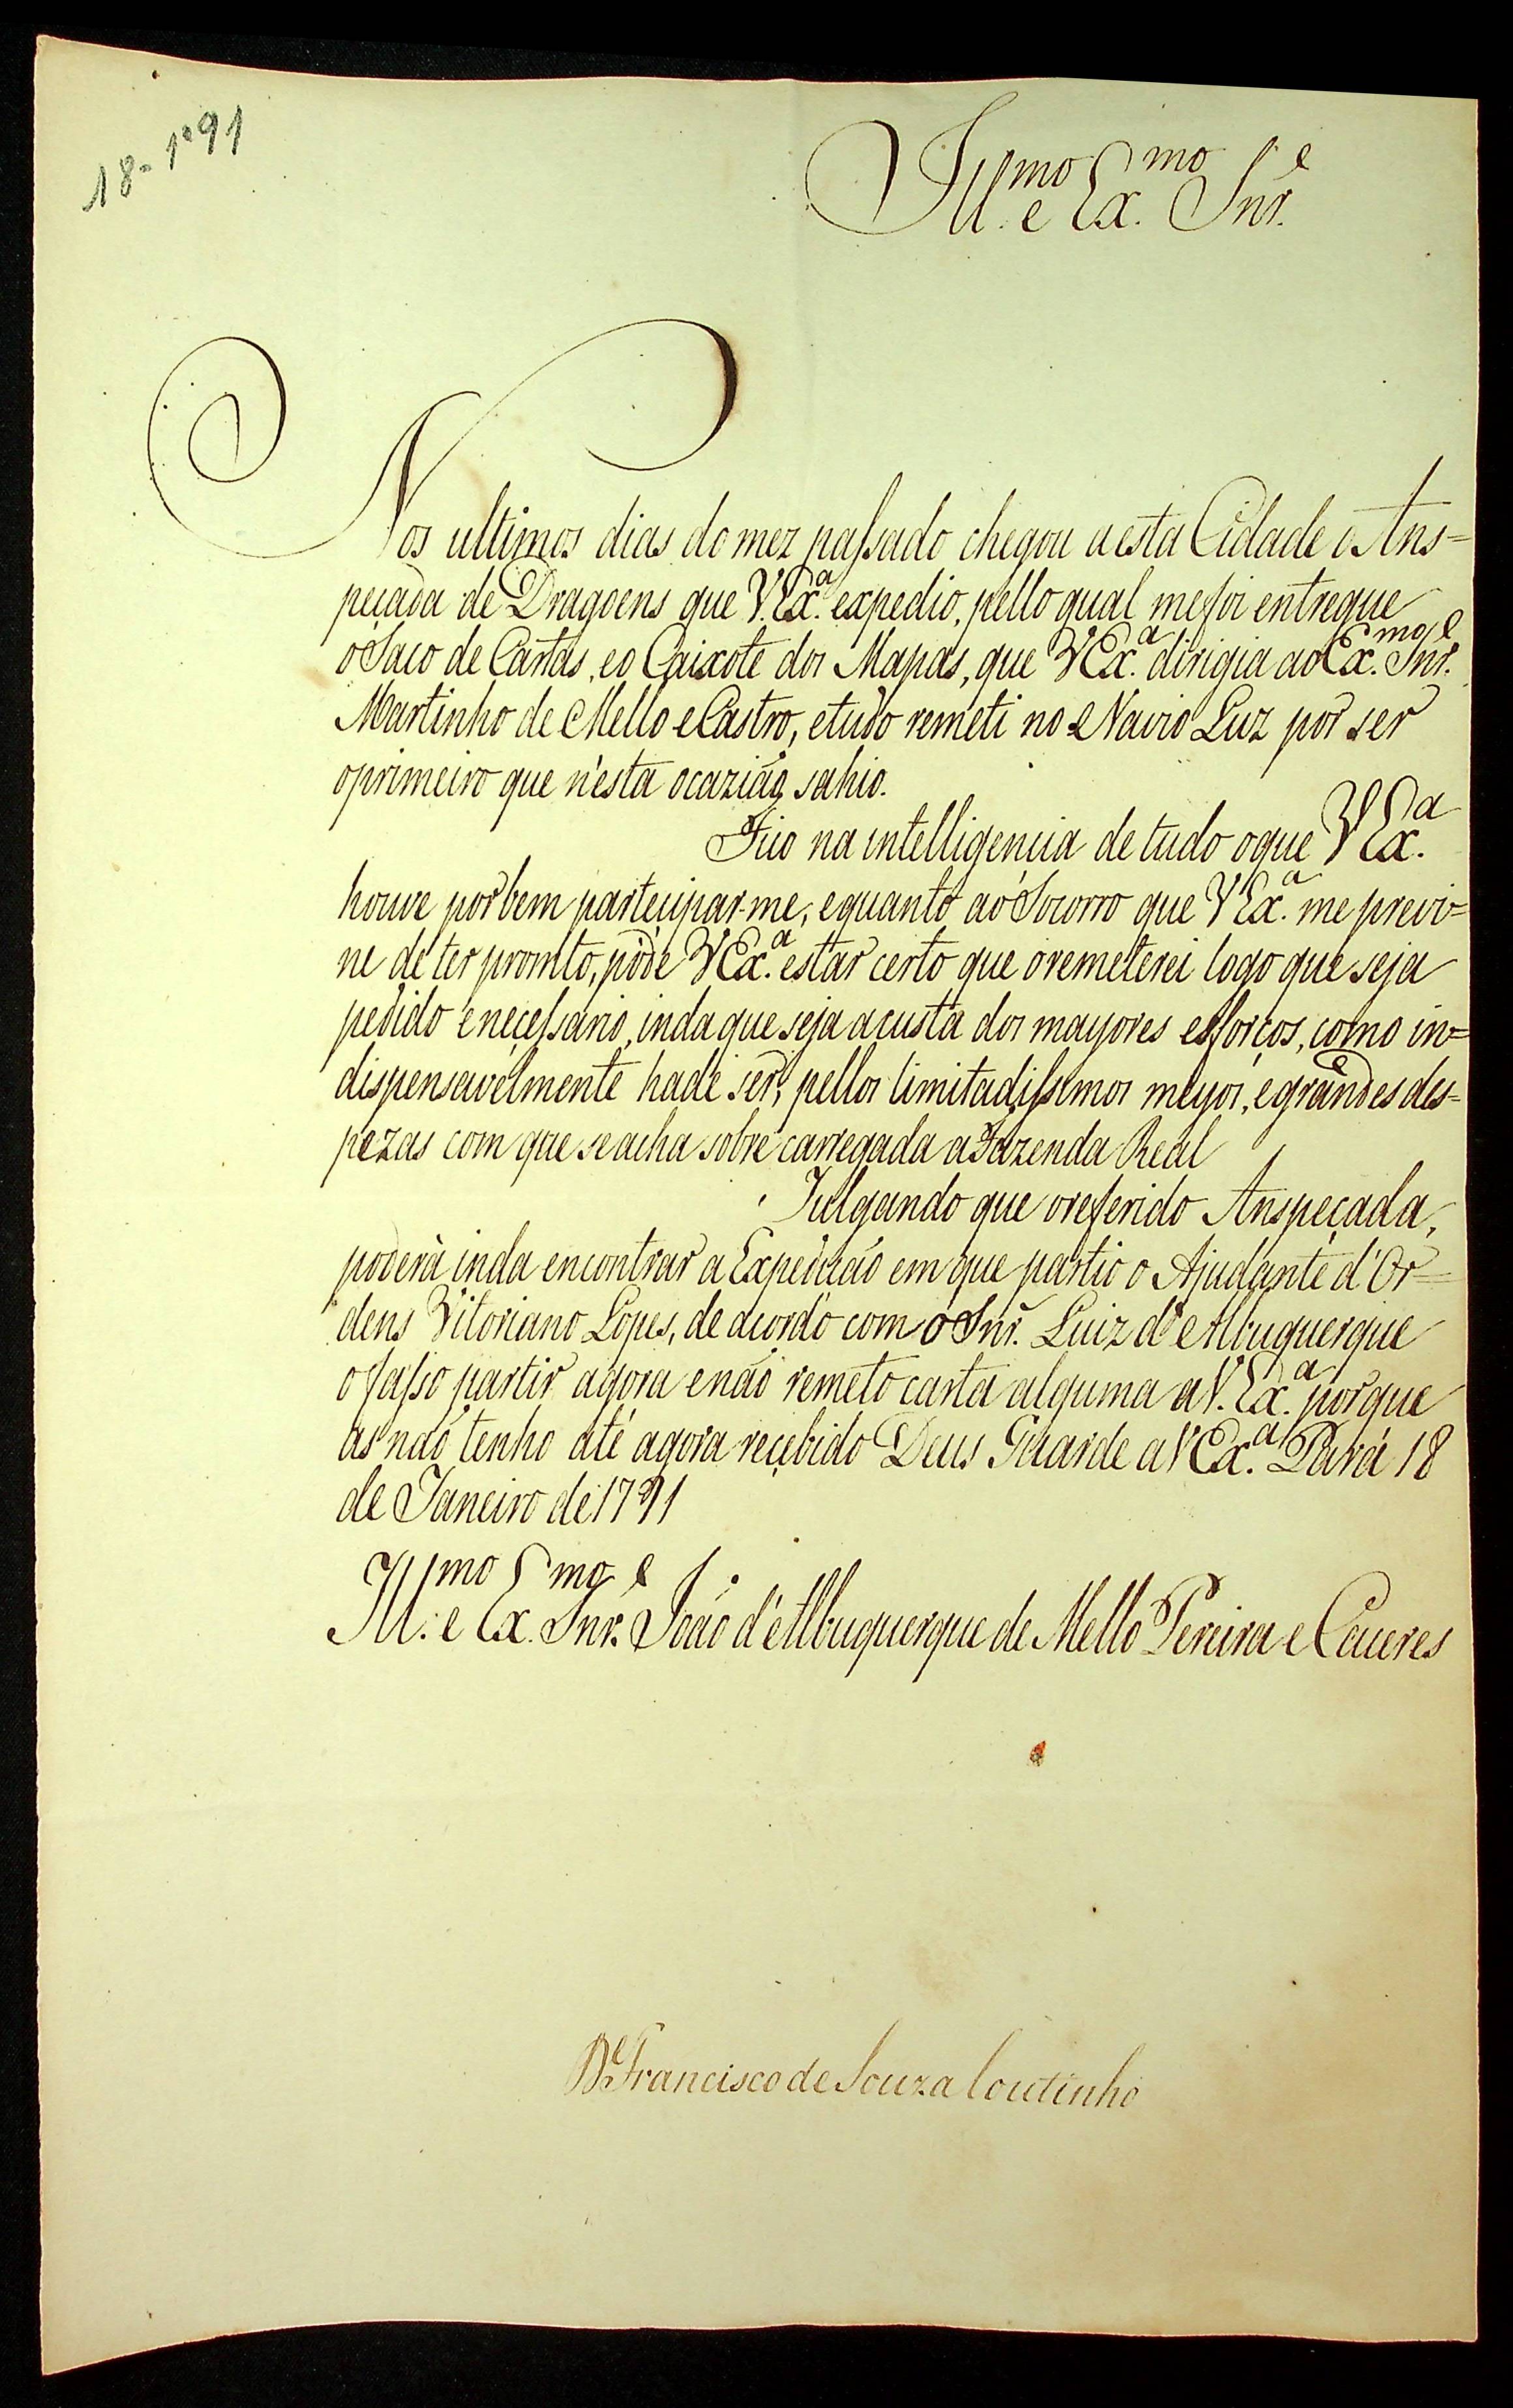 18-1º91
Ill.mo e Ex.mo Snr.e
Nos ultimos dias do mez passado chegou a esta Cidade o Ans=
peçada de Dragoens que V.Ex.a expedio, pello qual me foi entregue
o Saco de Cartas, e o Caixote dos Mapas, que V Ex.a dirigia ao Ex.mo Snr.e
Martinho de Mello e Castro, e tudo remeti no Navio Luz por ser
o primeiro que n'esta ocazião sahio.
Fico na intelligencia de tudo o que V Ex.a
houve por bem partecipar-me, e quanto ao Socorro que V Ex.a me previ=
ne de ter promto, póde V Ex.a estar certo que o remeterei logo que seja
pedido e necessario, inda que seja a custa dos mayores esforços, como in=
dispensavelmente hade ser, pellos limitadissimos meyos, e grandes des=
pezas com que se acha sobre carregada a Fazenda Real
Julgando que o referido Anspeçada,
poderà inda encontrar a Expedição em que partio o Ajudante d'Or=
dens Vitoriano Lopes, de acordo com o Snr. Luiz d'Albuquerque
o fasso partir agora e não remeto carta alguma a V. Ex.a porque
as não tenho até agora recebido Deus Guarde a V Ex.a Pará 18
de Janeiro de 1791
Ill.mo e Ex.mo Snr.e João d'Albuquerque de Mello Pereira e Caceres
D. Francisco de Souza Coutinho